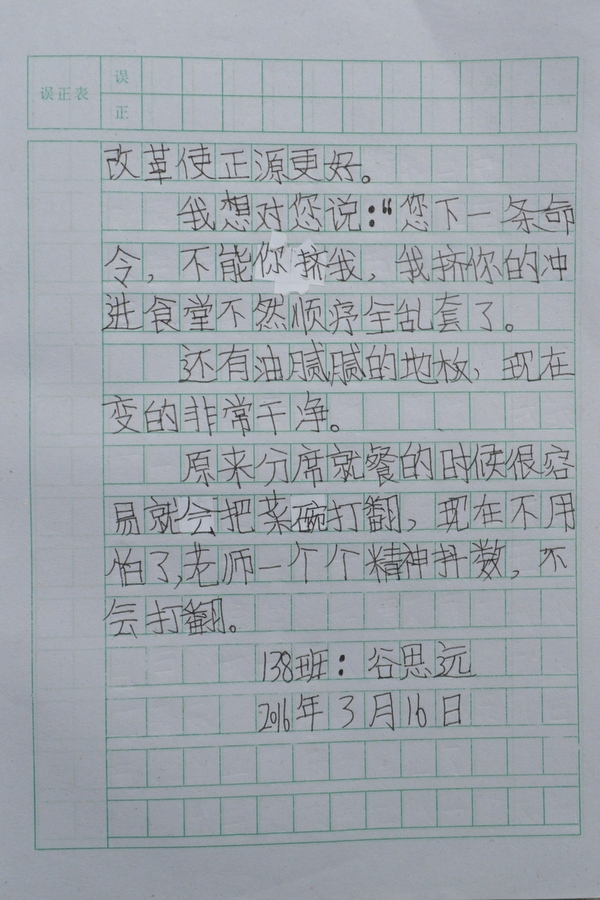 误正表
误
正
改革使正源更好。
我想对您说：“您下一条命
令，不能你挤我，我挤你的冲
进食堂不然顺序全乱套了。
还有油腻腻的地板，现在
变的非常干净。
原来分席就餐的时候很容
易就会把菜碗打翻，现在不用
怕了，老师一个个精神抖数，不
会打翻。
138班：谷思远
2016年3月16日